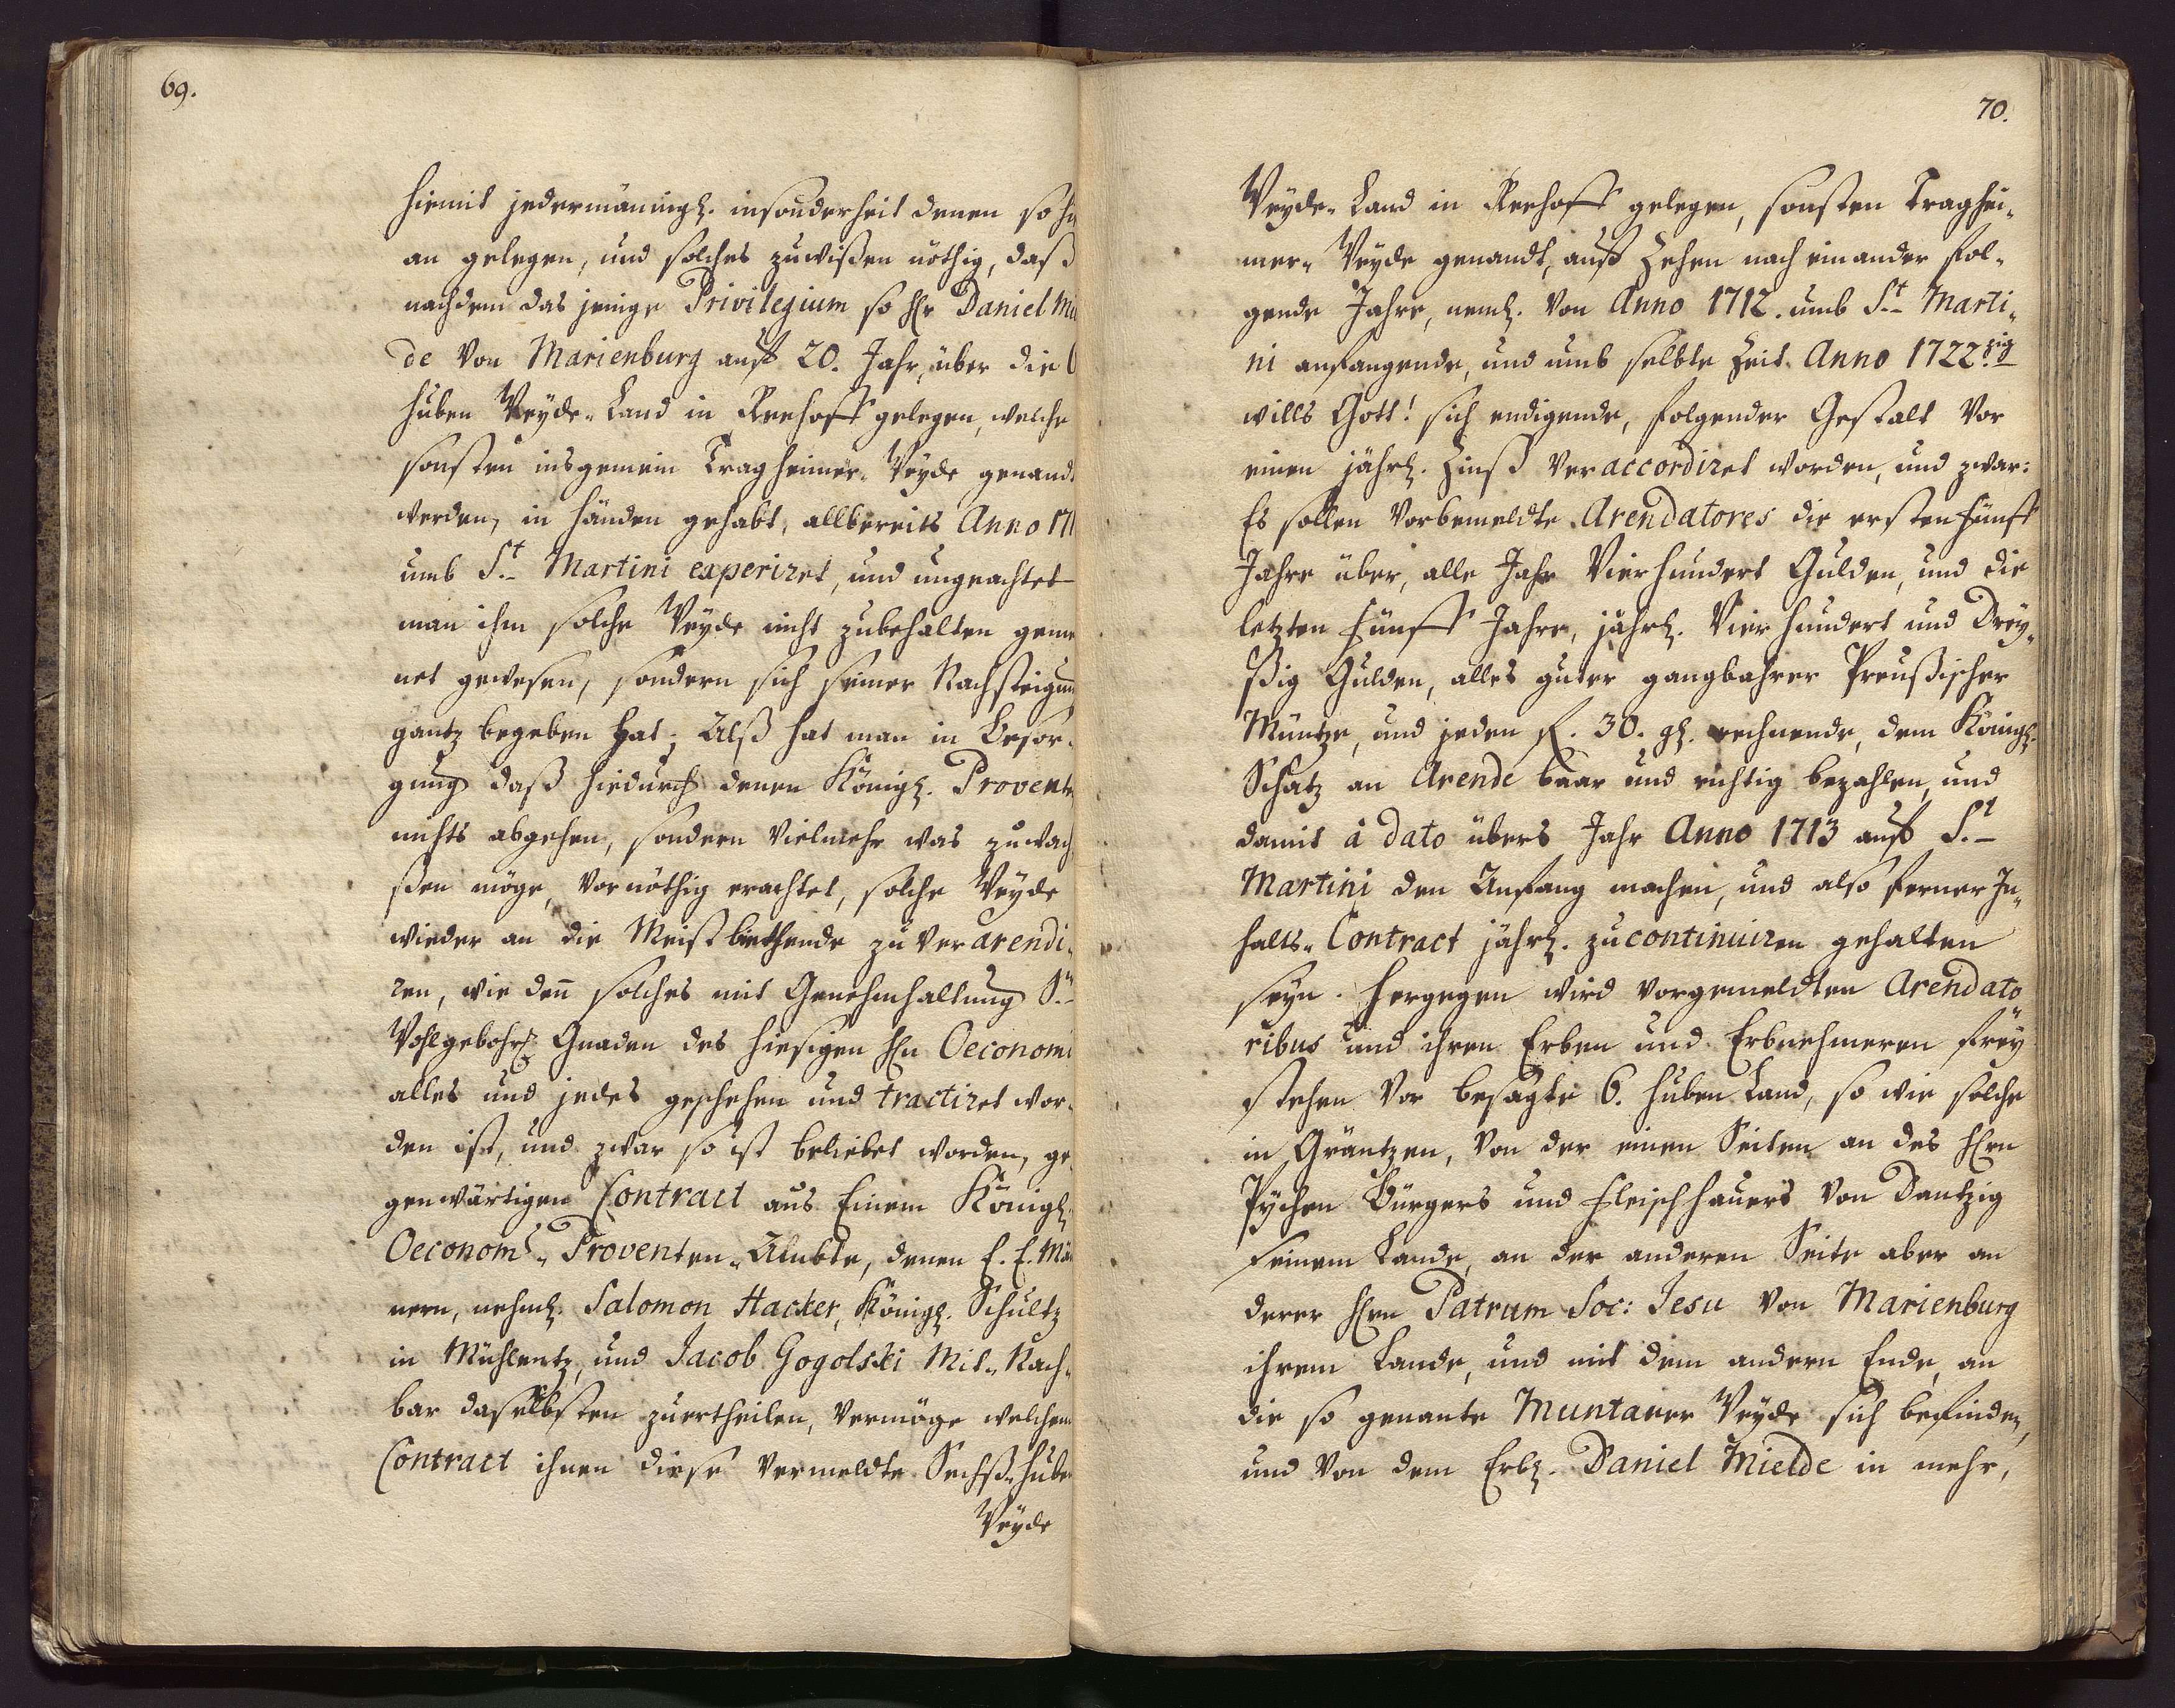 69.
hiemit jedermänningl. insonderheit denen so hie
an gelegen, und solches zuwißen nöthig, daß
nachdem das jenige Privilegium so H. Daniel Miel
de von Marienburg auff 20. Jahr, über die 6
Huben Weyde-Land in Reehoff gelegen, welche
sonsten insgemein Tragheimer-Weyde genandt
werden, in Händen gehabt, allbereits Anno 171
umb St. Martini experiret, und ungeachtet
man ihm solche Weyde nicht zubehalten geme
net gewesen, sondern sich seiner Nachsteigung
gantz begeben hat; Alß hat man in Besor-
gung daß hiedurch denen Königl. Provent
nichts abgehen, sondern vielmehr was zuwach
ßen möge, vor nöthig erachtet, solche Weyde
wieder an die Meistbiethende zu verarendi-
ren, wie den solches mit Genehmhaltung Sr.
Wohlgebohrl. Gnaden des hiesigen Hn Oeconomi
alles und jedes geschehen und tractiret wor-
den ist, und zwar so ist beliebet worden, ge-
genwärtigen Contract aus Einem Königl.
Oeconom.-Proventen-Ambte, denen E. E. Män
nern, nehml. Salomon Hacker, Königl. Schultz
in Mühlentz, und Jacob Gogolski Mit-Nach-
bar daselbsten zuertheilen, Vermöge welchem
Contract ihnen diese vermeldte Sechß-Hube
Weyde
70.
Weyde-Land in Reehoff gelegen, sonsten Traghei-
mer-Weyde genandt, auff Zehen nach einander fol-
gende Jahre, neml. von Anno 1712. umb St. Marti-
ni anfangende, und umb selbte Zeit Anno 1722zig
wills Gott! sich endigende, folgender Gestalt vor
einen jährl. Zinß veraccordiret worden, und zwar:
Es sollen vorbemeldte Arendatores die ersten Fünff
Jahre über, alle Jahr Vierhundert Gulden, und die
letzten Fünff Jahre, jährl. Vier hundert und Drey-
ßig Gulden, alles guter gangbahrer Preußischer
Müntze, und jeden f. 30. gl. rechnende, dem Königl.
Schatz an Arende baar und richtig bezahlen, und
damit à dato übers Jahr Anno 1713 auff St.
Martini den Anfang machen, und also ferner In-
halts-Contract jährl. zu continuiren gehalten
seyn. Hergegen wird vorgemeldten Arendato-
ribus und ihren Erben und Erbnehmeren frey
stehen vor besagte 6. Huben Land, so wie solche
in Gräntzen, von der einen Seiten an des Hrn
Pychen Bürgers und Fleischhauers von Dantzig
seinem Lande, an der anderen Seite aber an
derer Hrn Patrum Soc: Jesu von Marienburg
ihrem Lande, und mit dem andern Ende, an
die so genante Muntauer Weyde sich befinden,
und von dem Erbl. Daniel Mielde in mehr,